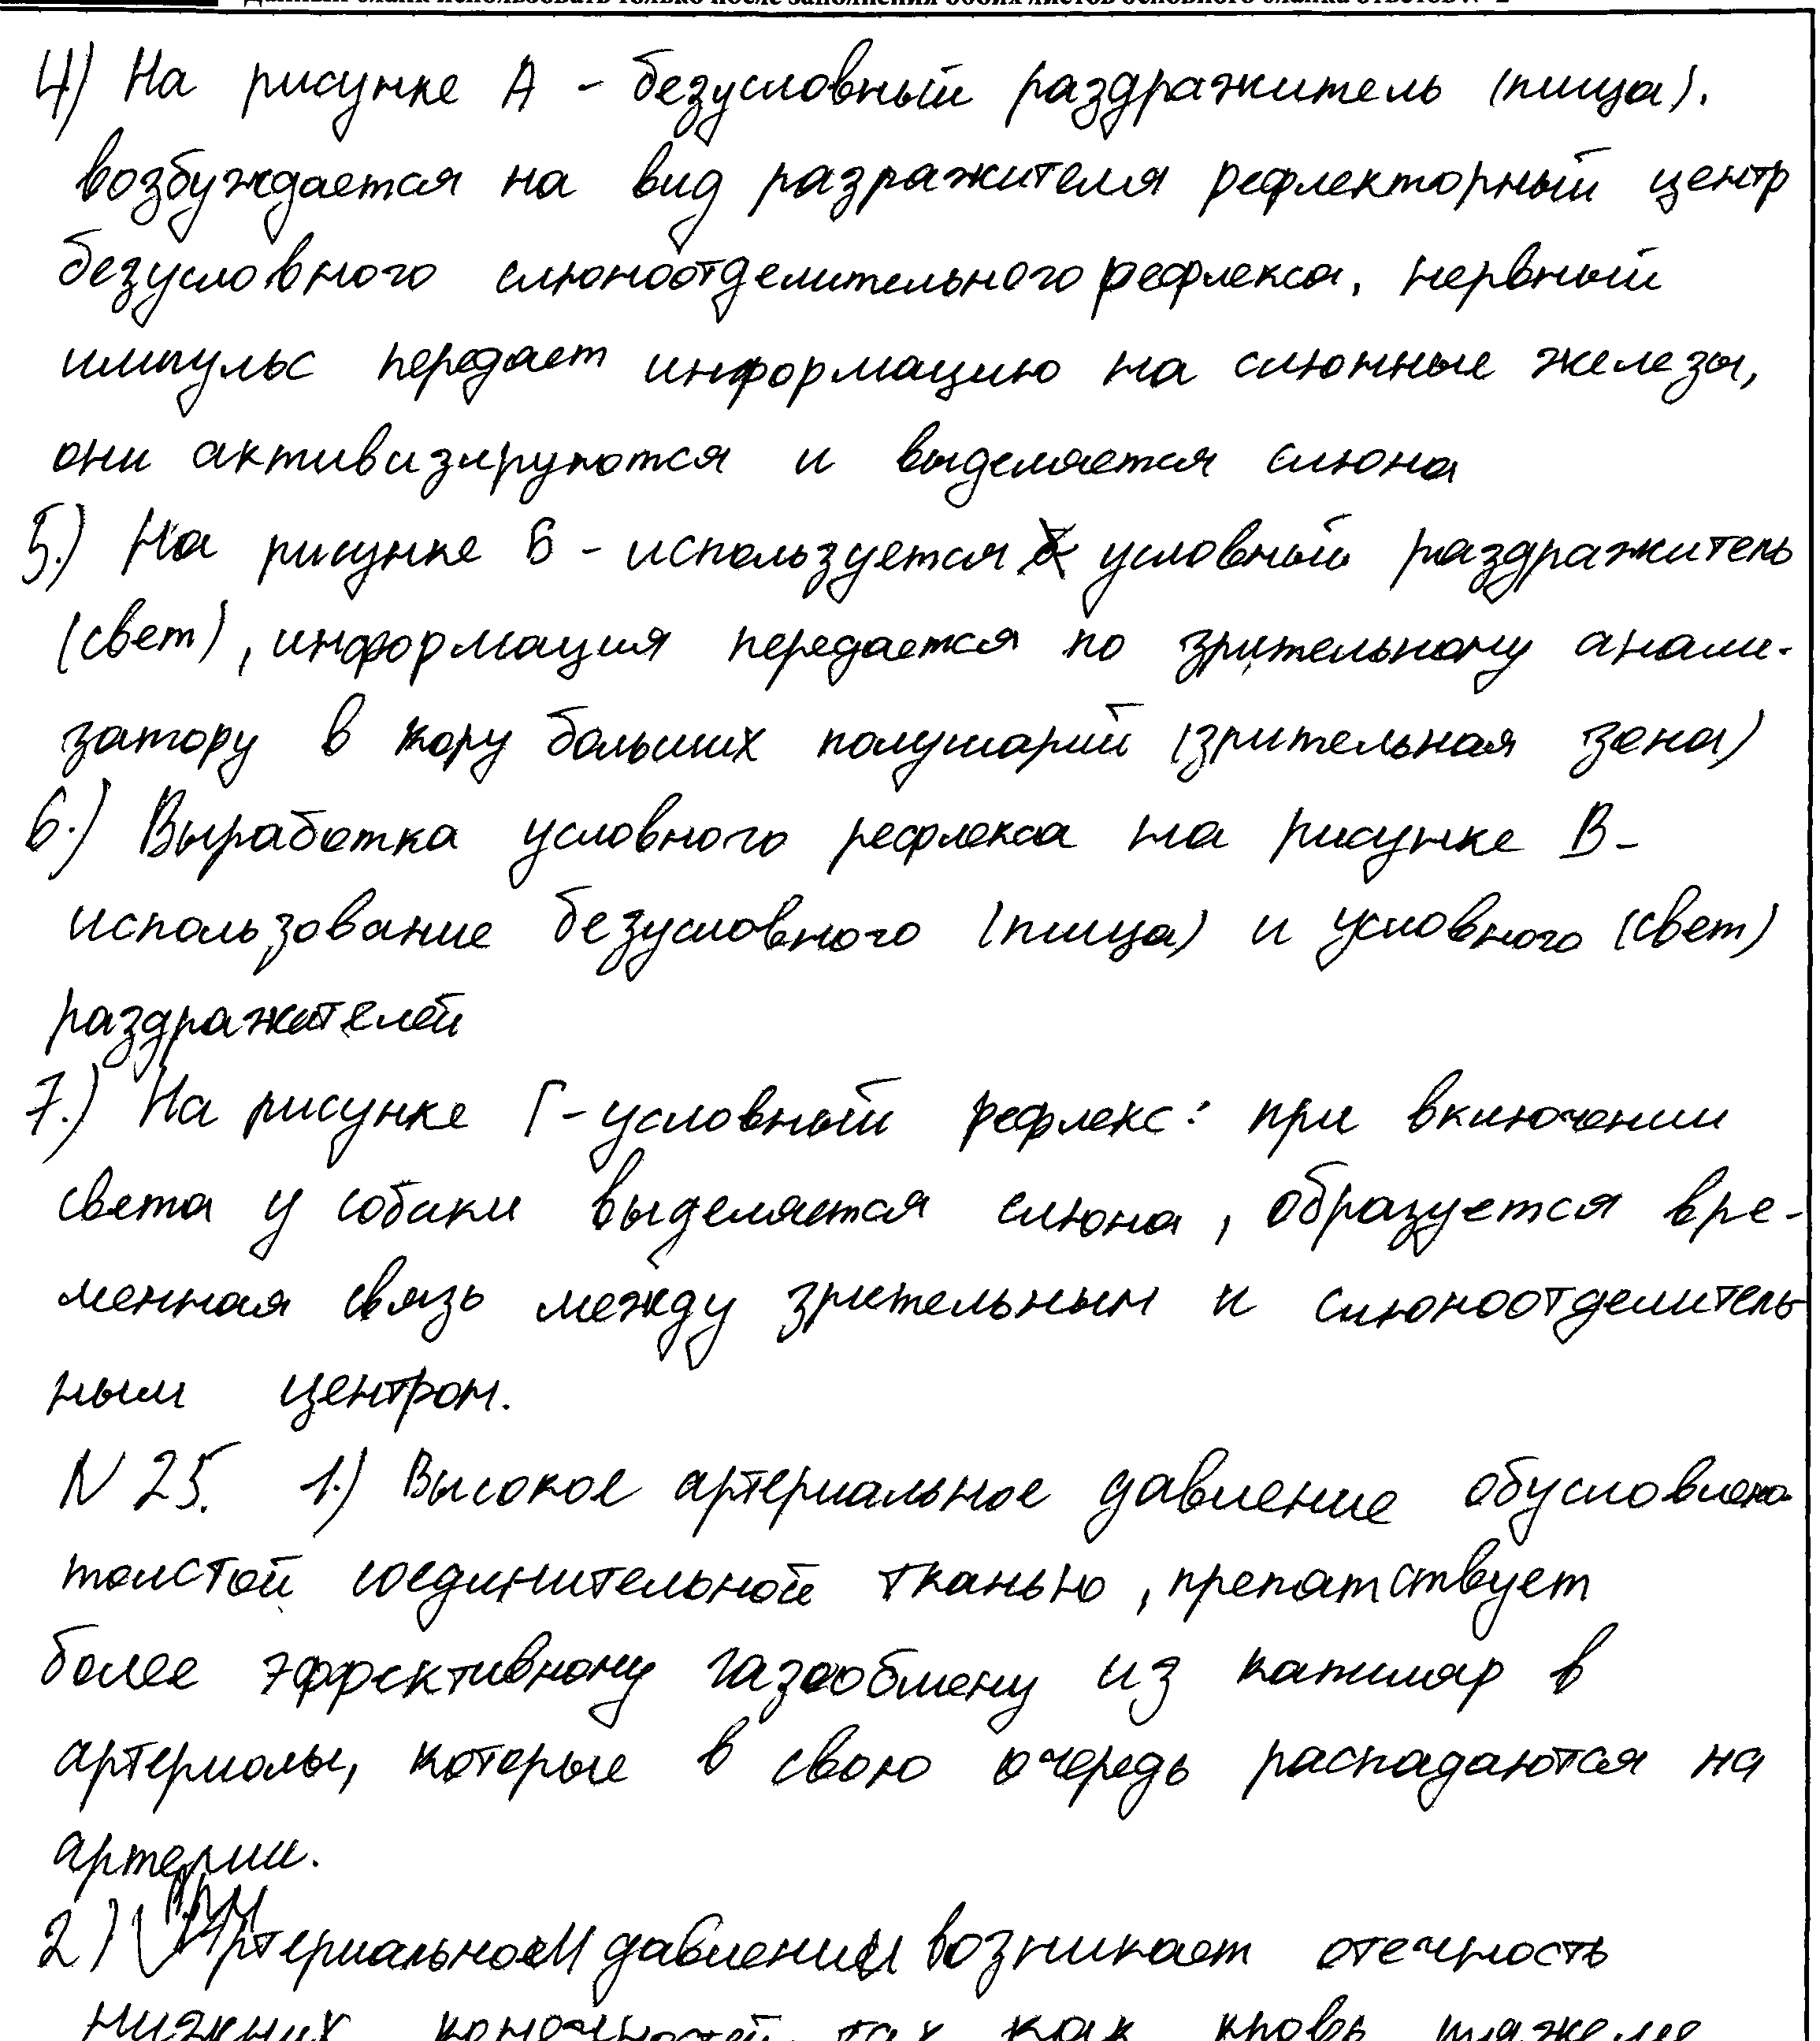 Данный бланк использовать только после заполнения обоих листов основного бланка ответов № 2
4) На рисунке А - безусловный раздражитель (пища).
возбуждается на вид разражителя рефлекторный центр
безусловного слюноотделительного рефлекса, нервный
импульс передает информацию на слюнные железы,
они активизируются и выделяется слюна
5.) На рисунке Б - используется условный раздражитель
(свет), информация передается по зрительному анали-
затору в кору больших полушарий (зрительная зона)
6.) Выработка условного рефлекса на рисунке В -
использование безусловного (пища) и условного (свет)
раздражителей
7.) На рисунке Г - условный рефлекс: при включении
света у собаки выделяется слюна, образуется вре-
менная связь между зрительным и слюноотделитель
ным центром.
N 25. 1.) Высокое артериальное давление обусловлено
толстой соединительной тканью, препатствует
более эффективному газообмену из капиляр в
артериолы, которые в свою очередь распадаются на
артерии.
2) При артериальном давлении возникает отечность
нижних конечностей, так как кровь тяжелее